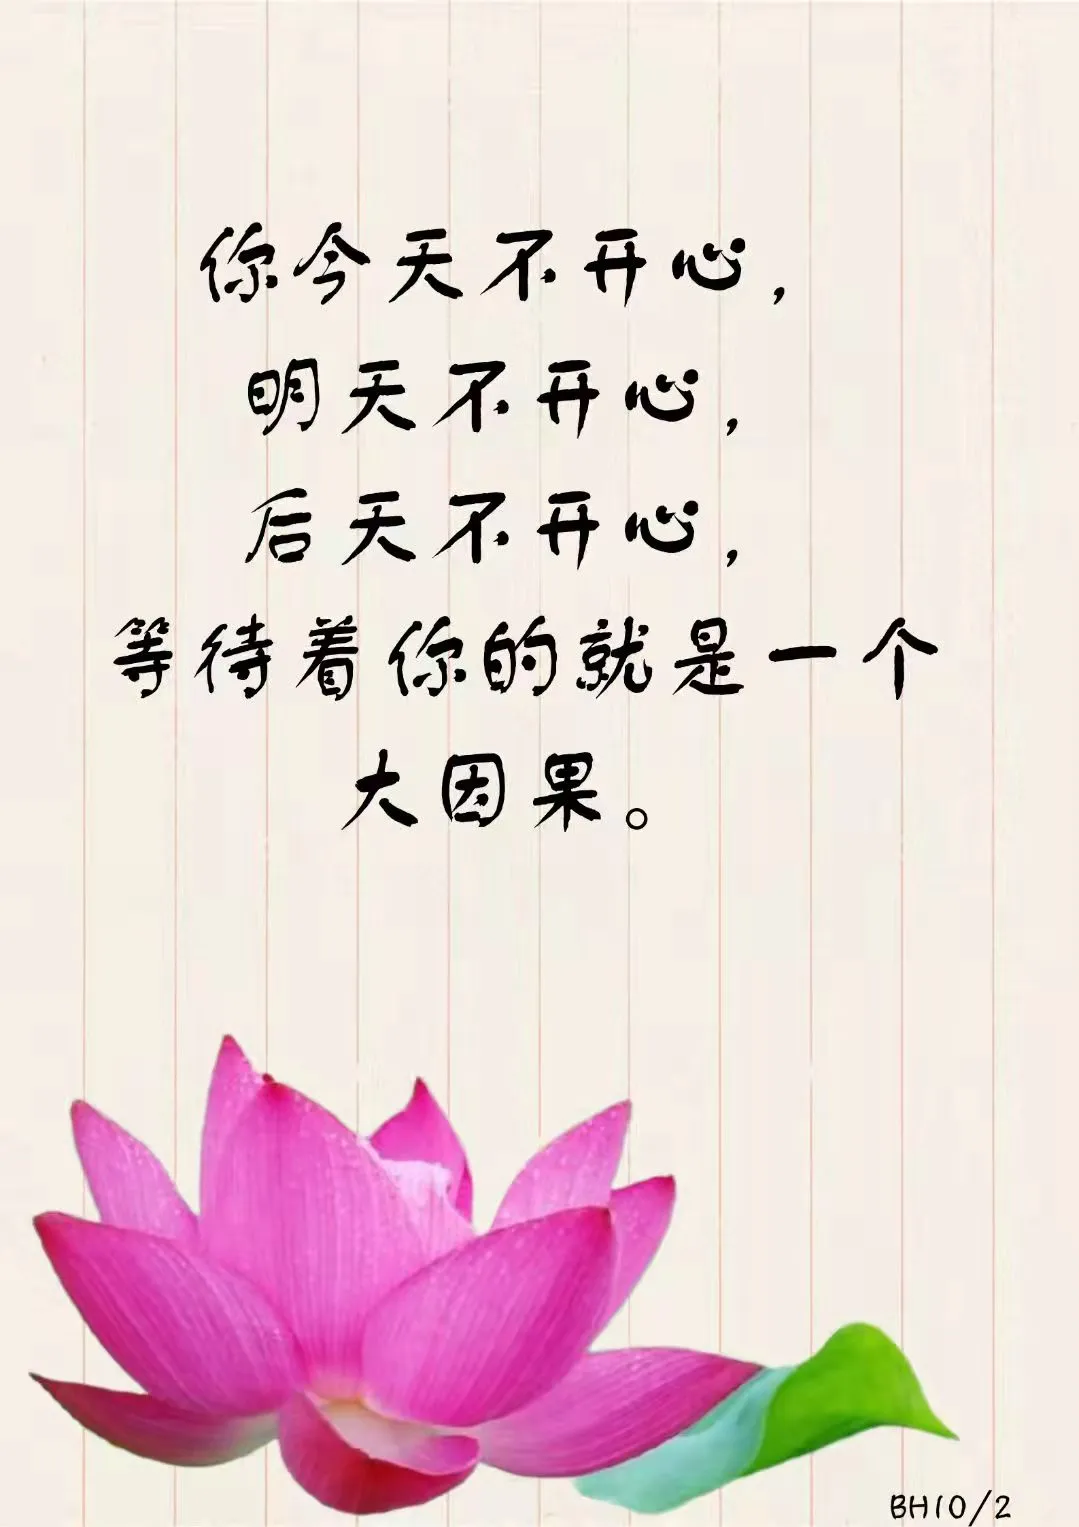 你今天不开心，
明天不开心，
后天不开心，
等待着你的就是一个
大因果。
BH10/2